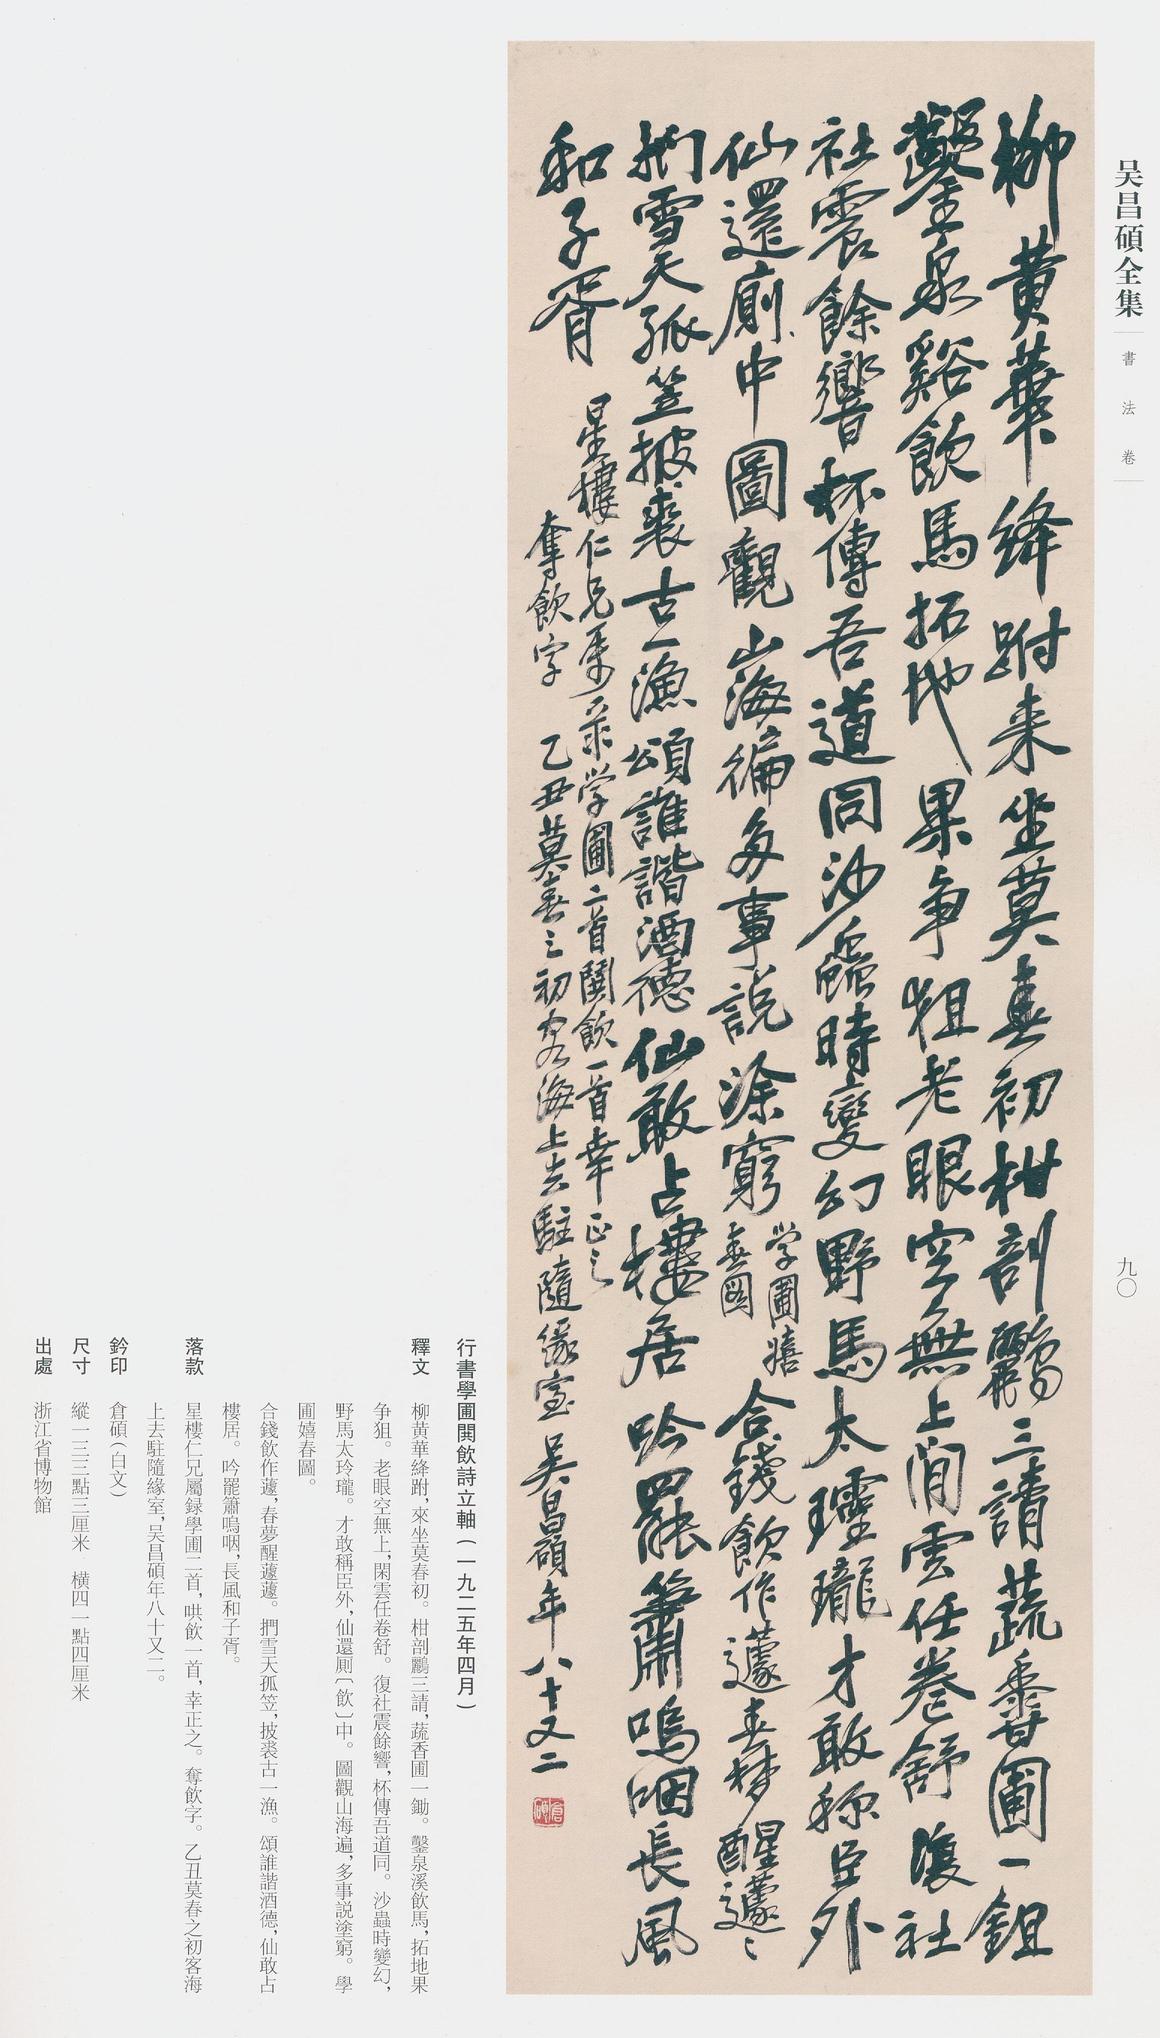 吴昌碩全集
書法卷
九〇
柳黄華絳跗来坐莫春初柑剖鸝三請蔬香圃一鉏
鑿泉谿飲馬拓地果争狙老眼空無上閒雲任卷舒復社
社震餘響杯傳吾道同沙蟲時變幻野馬太玲瓏才敢稱臣外
仙還廁中圖觀山海徧多事説涂窮 学圃嬉
春圖
合錢飲作蘧春梦醒蘧〻
捫雪天孤笠披裘古一漁頌誰諧酒德仙敢占樓居吟罷簫嗚咽長風
和子胥
星樓仁兄属录学圃二首鬨飲一首幸正之
奪飲字 乙丑莫春之初客海上去駐隨緣室吴昌碩年八十又二
倉碩
行書學圃鬨飲詩立軸(一九二五年四月)
釋文 柳黄華絳跗,來坐莫春初。柑剖鸝三請,蔬香圃一鋤。鑿泉溪飲馬,拓地果
争狙。老眼空無上,閑雲任卷舒。復社震餘響,杯傳吾道同。沙蟲時變幻,
野馬太玲瓏。才敢稱臣外,仙還厠〔飲〕中。圖觀山海遍,多事説塗窮。學
圃嬉春圖。
合錢飲作蘧,春夢醒蘧蘧。捫雪天孤笠,披裘古一漁。頌誰諧酒德,仙敢占
樓居。吟罷簫嗚咽,長風和子胥。
落款 星樓仁兄屬録學圃二首,哄飲一首,幸正之。奪飲字。乙丑莫春之初客海
上去駐隨緣室,吴昌碩年八十又二。
鈐印 倉碩(白文)
尺寸 縱一三三點三厘米 橫四一點四厘米
出處 浙江省博物館